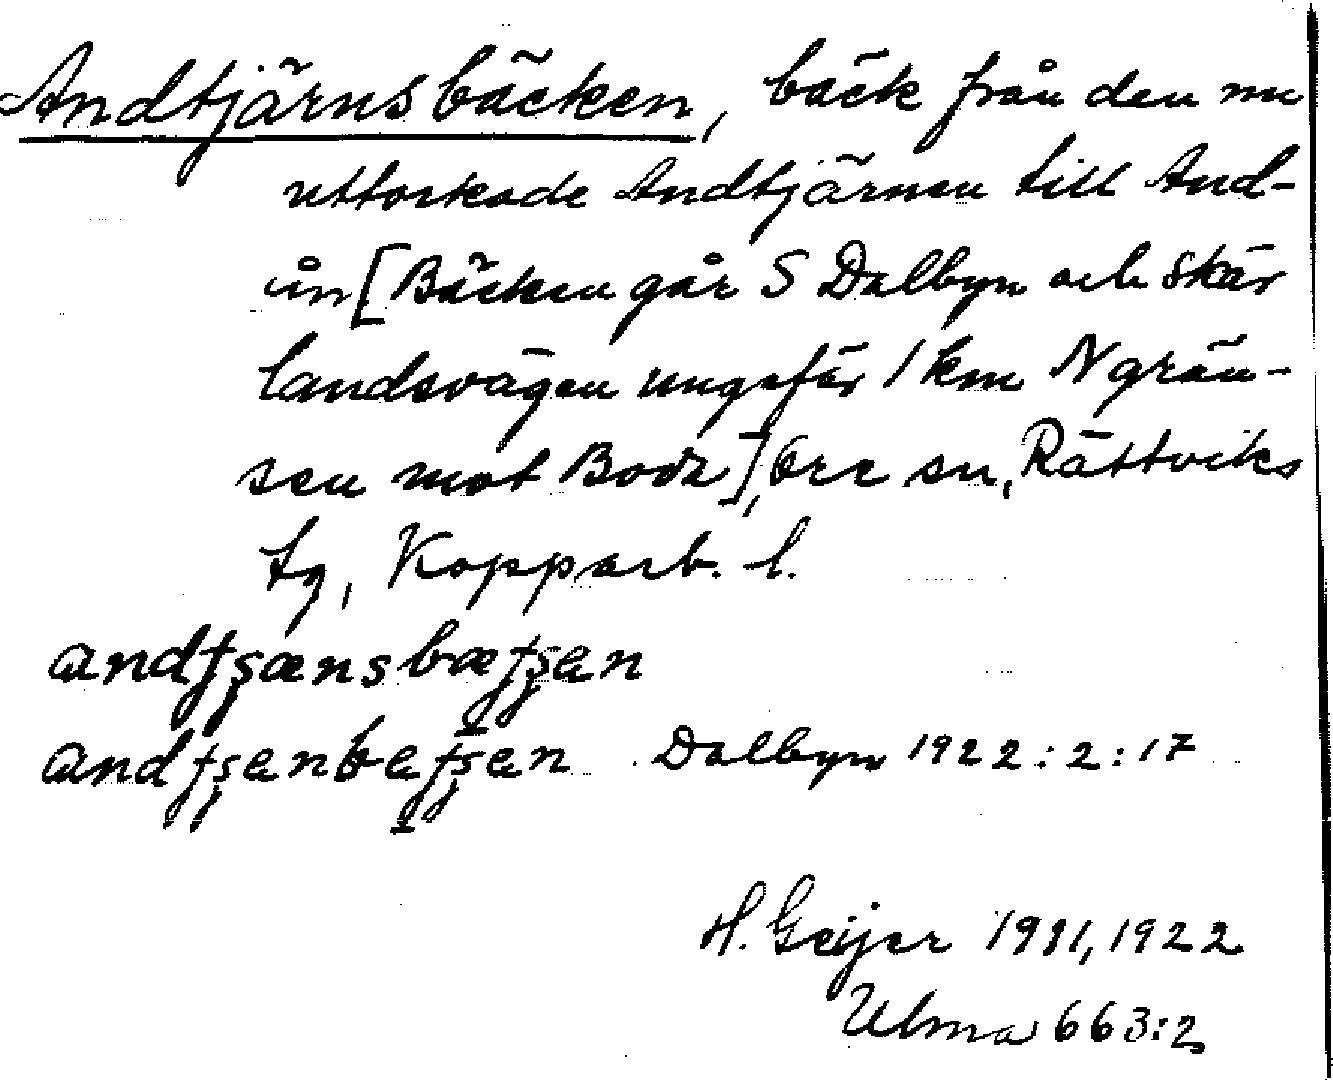 Andtjärnsbäcken, bäck från den nu
uttorkade Andtjärnen till And-
ån [Bäcken går S Dalbyn och skär
landsvägen ungefär 1 km N grän-
sen mot Boda], Ore sn, Rättviks
tg, Kopparb. l.
andʈʂænsbæʈʂen
andʈʂenbeʈʂen Dalbyn 1922:2:17
H. Geijer 1911, 1922
Ulma 663:2